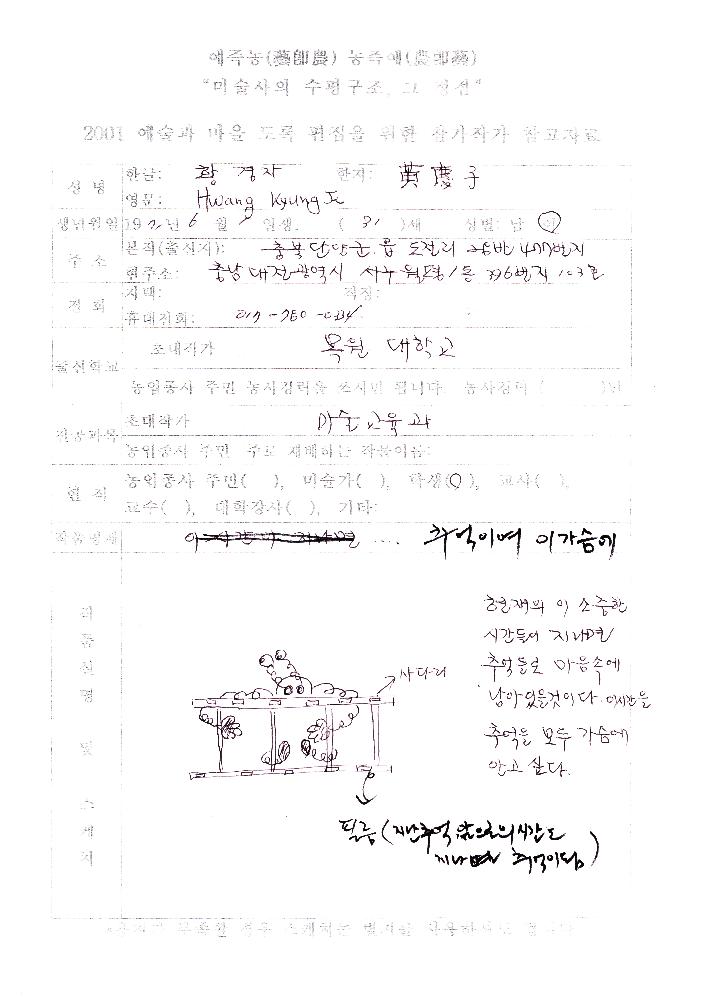 예즉농(藝卽農) 농즉예(農卽藝)
"미술사의 수평구조, 그
2001 예술과 마을 도록 편집을 위한 참가작가 참고자료
성 명
한글: 황 경자 한자: 黃 慶 子
영문: Hwang Kyung Ja
생년월일 19 년 6 월 일생. ( 31 )세 성별: 남 여
주 소
본적(출신지): 충북 단양군 읍 도전리
현주소: 충남 대전광역시 서구 월평1동 336번지 103호
전 화
자택: 직장:
휴대전화:
출신학교
초대작가 목원 대학교
농업종사 주민 농사경력을 쓰시면 됩니다. 농사경력 ( )년
전공과목
초대작가 미술교육과
농업종사 주민 주로 재배하는 작물이름:
현 직
농업종사 주민( ), 미술가( ), 학생(O), 교사( ),
교수( ), 대학강사( ), 기타:
작품제목
.... 추억이여 이가슴에
작
품
설
명
및
스
케
치
현재의 이 소중한
시간들이 지나면
추억들로 마음속에
남아있을것이다. 이시간을
추억을 모두 가슴에
안고 싶다.
사다리
필름 (지난추억 앞으로의시간도
지나면 추억이됨)